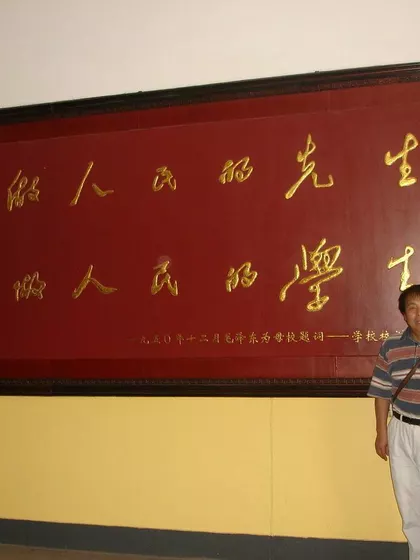 做人民的先生
做人民的學生
一九五〇年十二月毛泽东为母校题词——学校校